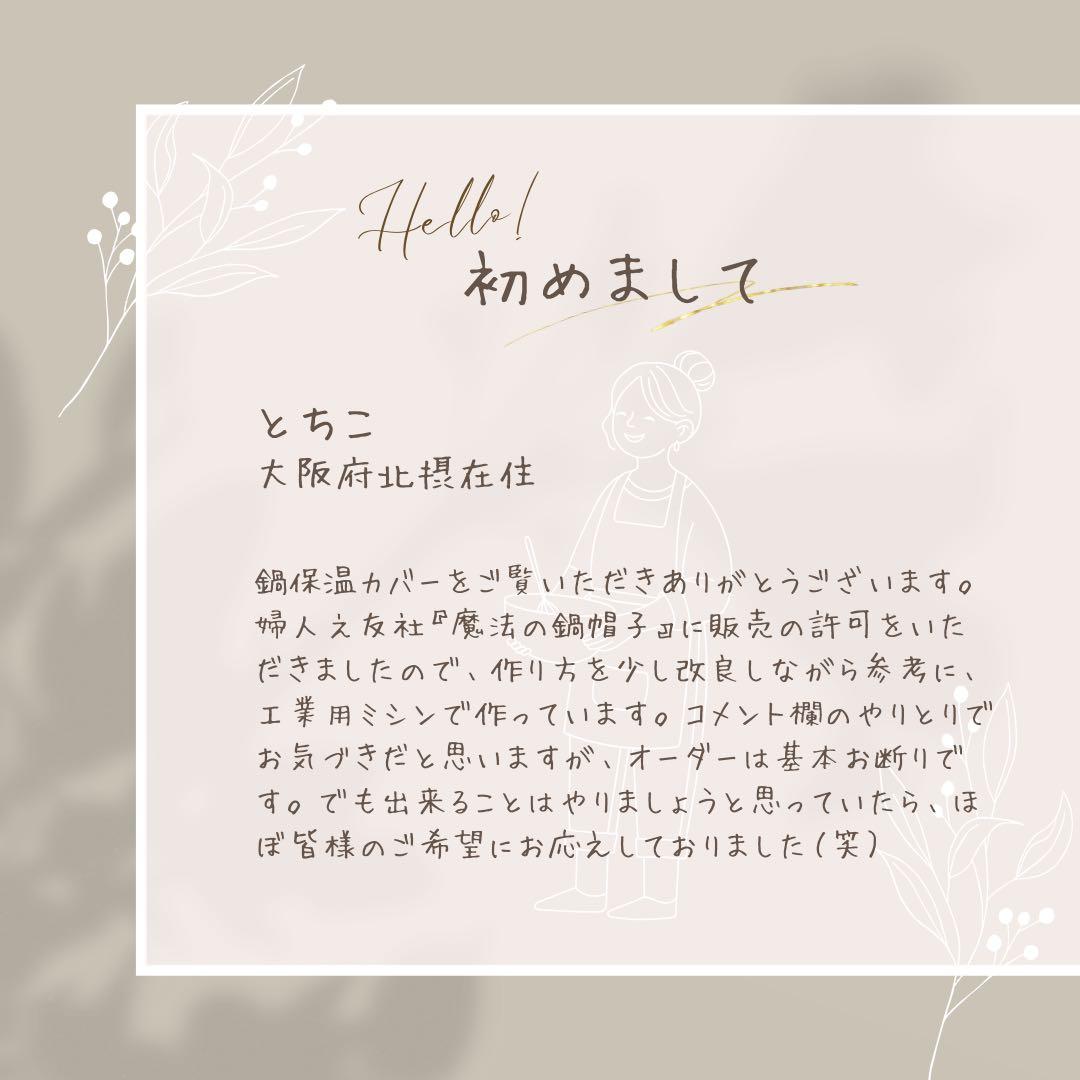 Hello!
初めまして
とちこ
大阪府北摂在住
鍋保温カバーをご覧いただきありがとうございます。
婦人之友社『魔法の鍋帽子』に販売の許可をいた
だきましたので、作り方を少し改良しながら参考に、
工業用ミシンで作っています。コメント欄のやりとりで
お気づきだと思いますが、オーダーは基本お断りで
す。でも出来ることはやりましょうと思っていたら、ほ
ぼ皆様のご希望にお応えしておりました(笑)